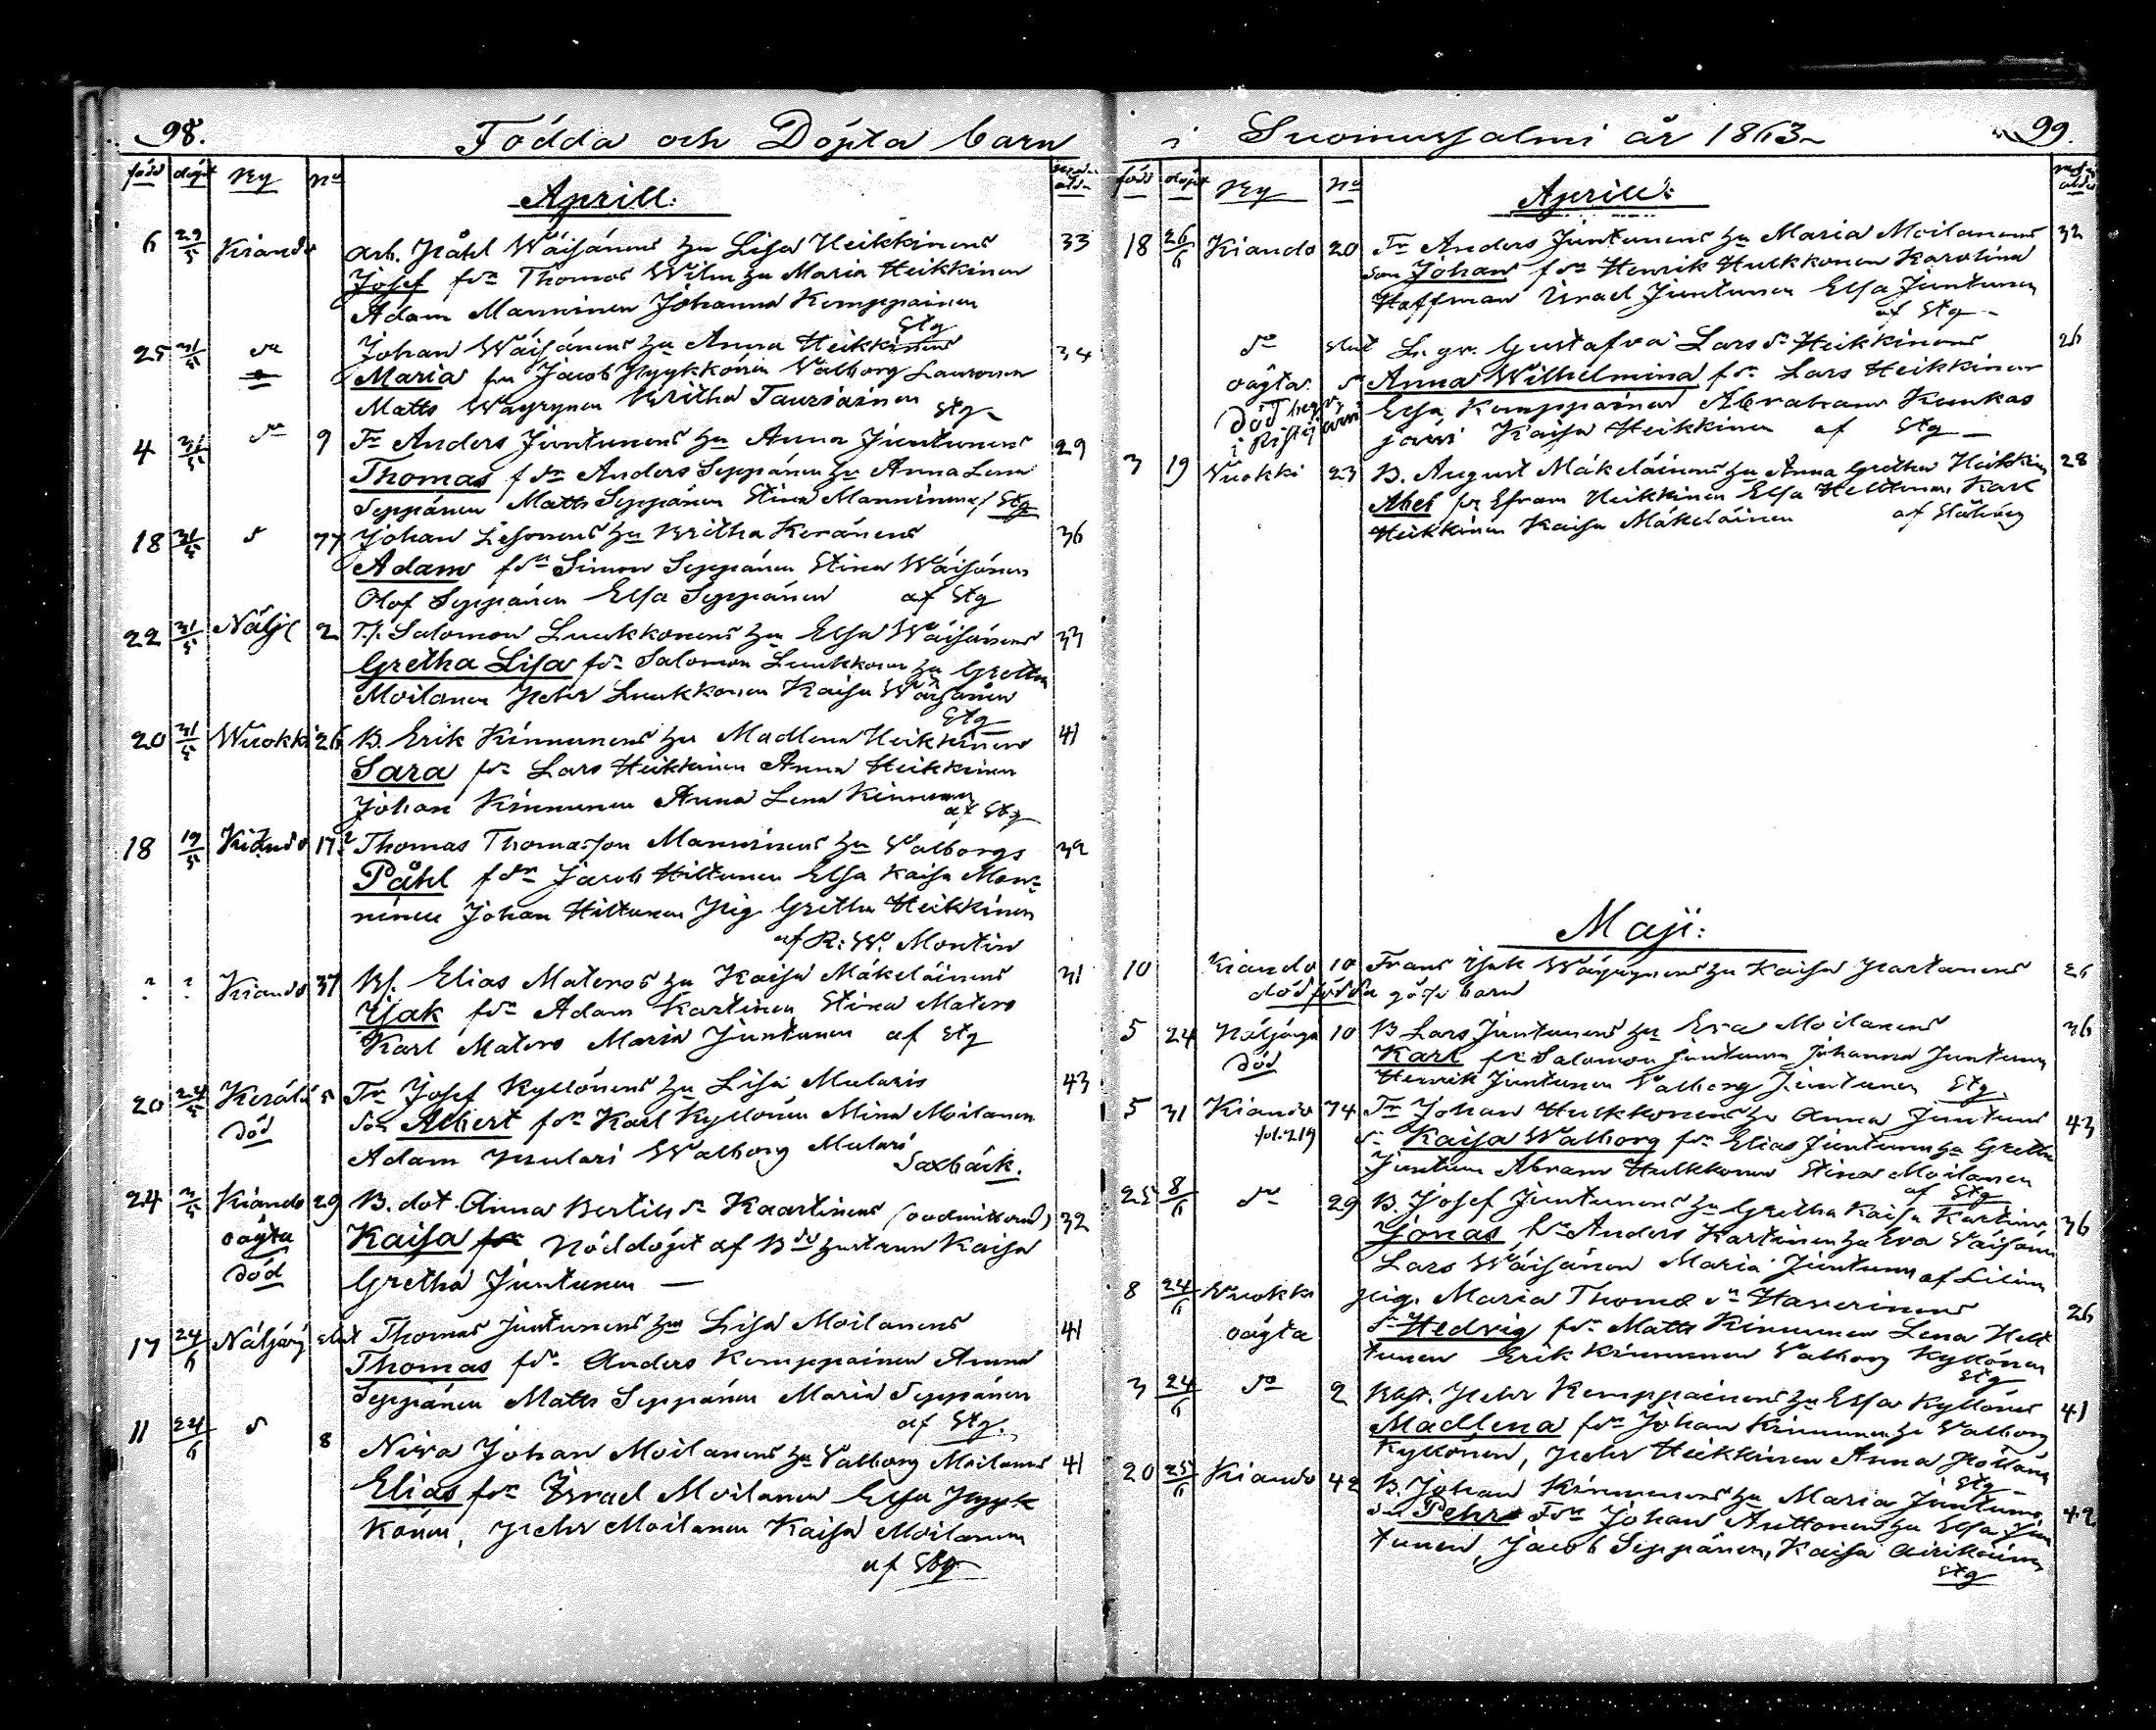 98.
Födda och Döpta barn
född döpt By No
Aprill:
6 29/5 Kiando Arb. Påhl Wäisänens hu Lisa Heikkinens 33
Josef fdr Thomas Wilm hu Maria Heikkinen
Adam Manninen Johanna Kemppainen
Stg
25 31/5 do Johan Wäisänens hu Anna Heikkinens 34
Maria fdr Jacob Pyykkönen Walborg Lauronen
Matts Wäyrynen Britha Tauriainen Stg
4 31/5 do 9 Tr Anders Juntunens hu Anna Juntunens 29
Thomas fdr Anders Seppänen hu Anna Lena
Seppänen Matts Seppänen Stina Manninen Stg
18 31/5 d 77 Johan Lesonens hu Britha Keränens 36
Adam fdr Simon Seppänen Stina Wäisänen
Olof Seppänen Elsa Seppänen af Stg
22 31/5 Näljc 2 T.f. Salomon Luukkonens hu Elsa Wäisänens 33
Gretha Lisa fdr Salomon Luukkonen hu Gretha
Moilanen Pehr Luukkonen Kaisa Wäisänen
Stg
20 31/5 Wuokki 26 B. Erik Kinnunens hu Madlena Heikkinens 41
Sara fdr Lars Heikkinen Anna Heikkinen
Johan Kinnunen Anna Lena Kinnunen
af Stg
18 19/5 Kiando 17 Thomas Thomasson Manninens hu Walborgs 39
Påhl fdr Jacob Hiltunen Elsa Kaisa Man-
ninen Johan Hiltunen Pig Gretha Heikkinen
af R: W. Montin
? ? Kiando 37 Bf. Elias Materos hu Kaisa Mäkeläinens 31
Isak fdr Adam Kartinen Stina Matero
Karl Matero Maria Juntunen af Stg
20 24/5 Kerälä 5 Tr Josef Kyllönens hu Lisa Mularis 43
död Son Albert fdr Karl Kyllönen Mina Moilanen
Adam Mulari Walborg Mulari
Saxbäck.
24 Kiando 29 B. dot. Anna Bertils dr Kaartinens 32
oägta Kaisa fdr Nöddöpt af Bdo hustrun Kaisa
död Gretha Juntunen —
17 24/6 Näljörj slut Thomas Juntunens hu Lisa Moilanens 41
Thomas fdr Anders Kemppainen Anna
Seppänen Matts Seppänen Maria Seppänen
af Stg.
11 24/6 d 8 Niva Johan Moilanens hu Walborg Moilanens 41
Elias fdr Israel Moilanen Elsa Pyyk
könen, Pehr Moilanen Kaisa Moilanen
af Stg
i Suomusjalmi år 1863
99.
född döpt By No
Aprill:
18 26/6 Kiando 20 Tr Anders Juntunens hu Maria Moilanens 32
Son Johan fdr Henrik Hulkkonen Karolina
Hoffman Israel Juntunen Elsa Juntunen
af Stg
do slut L. gr. Gustafva Lars dr Heikkinens 26
oägta dr Anna Wilhelmina fdr Lars Heikkinen
Död Elsa Kemppainen Abraham Kuukas
i Ristijärvi järvi Kaisa Heikkinen af Stg
3 19 Wuokki 23 B. August Mäkeläinens hu Anna Gretha Heikkin 28
Abel fdr Efram Heikkinen Elsa Heikkinen Karl
Heikkinen Kaisa Mäkeläinen af Ståhlberg
Maji:
10 Kiando 10 Frans Isak Wäyrynens hu Kaisa Partanens 26
död födda gosse barn
5 24 Näljänga 10 B Lars Juntunens hu Eva Moilanens 36
död Karl fdr Salomon Juntunen Johanna Juntunen
Henrik Juntunen Walborg Juntunen Stg
5 31 Kiando 74 Tr Johan Hulkkonens hu Anna Juntunens 43
fol. 219 dr Kaisa Walborg fdr Elias Juntunen hu Gretha
Juntunen Abram Hulkkonen Stina Moilanen
af Stg
25 8/6 do 29 B. Josef Juntunens hu Gretha Kaisa Kartinens 36
Jonas fdr Anders Kartinen hu Eva Väisänen
Lars Wäisänen Maria Juntunen af Lilius
8 24/6 Wuokki Pig. Maria Thomas dr Haverinens 26
oägta dr Hedvig fdr Matts Kinnunen Lena Helt
tunen Erik Kinnunen Walborg Kyllönen
Stg
3 24/6 do 2 Pehr Kemppainens hu Elsa Kyllönens 41
Madlena fdr Johan Kinnunen hu Walborg
Kyllönen, Pehr Heikkinen Anna
Stg
20 25/6 Kiando 42 B. Johan Kinnunens hu Maria Juntunens 42
Pehr fdr Johan Anttonen hu Elsa Jun
tunen, Jacob Seppänen, Kaisa Airikainen
Stg